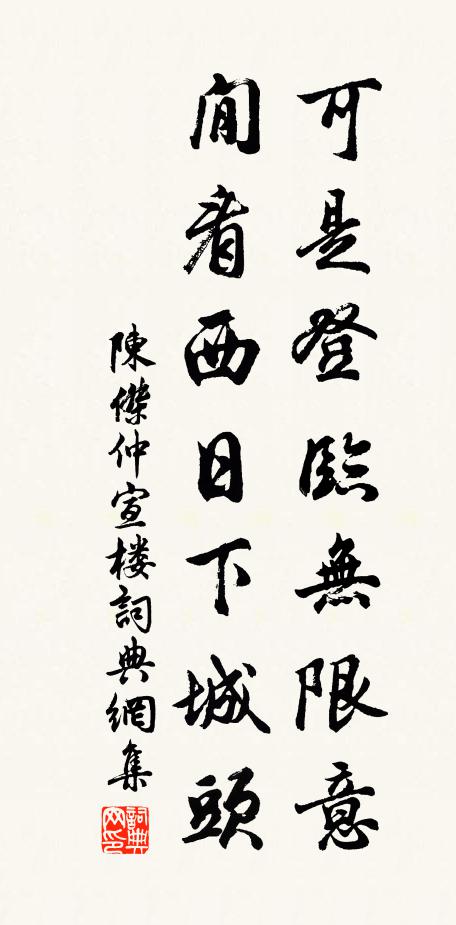 可是登臨無限意
閒看西日下城頭
陳傑仲宣楼詞典網集
詞典网印